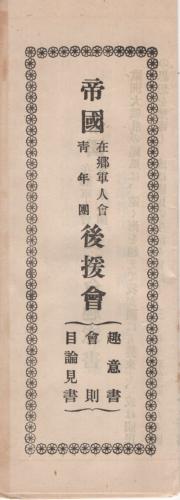 帝國在郷軍人會青年團後援會
趣意書
會則
目論見書